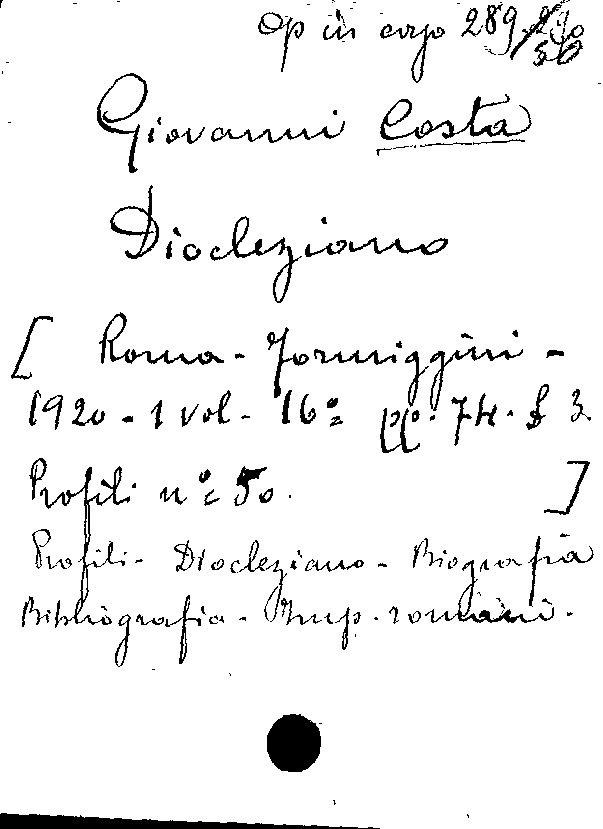 Op in corso 289
50
Giovanni Costa
Diocleziano
[ Roma - Formiggini -
1920 - 1 vol - 16º pp. 74. £ 3.
Profili nº 50. ]
Profili - Diocleziano - Biografia
Bibliografia - Imp. romani.